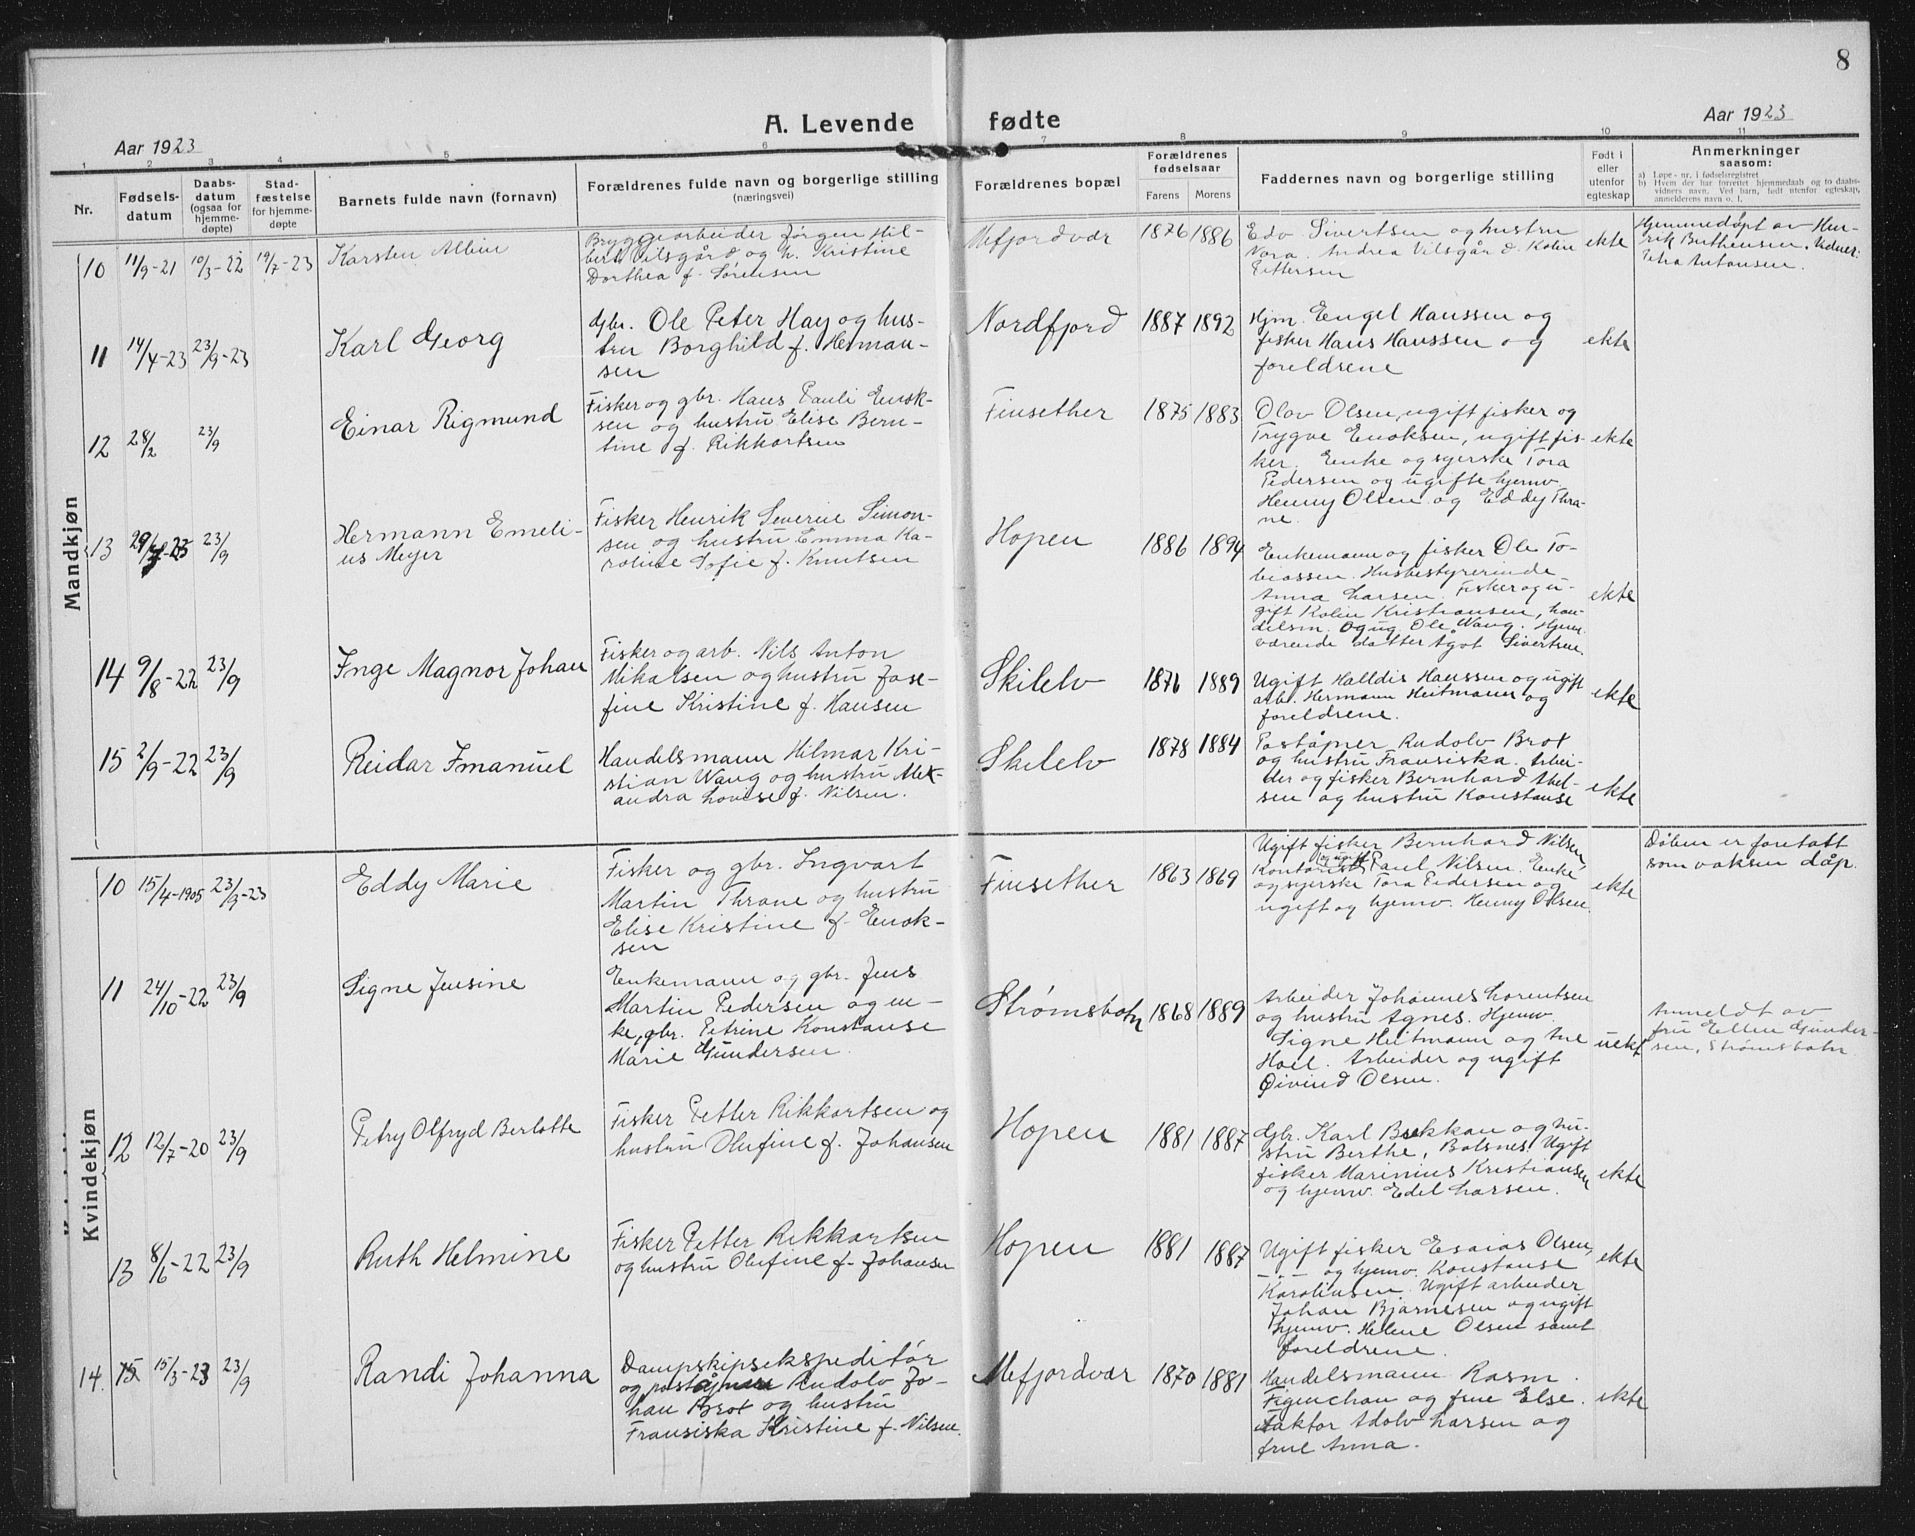 8
A. Levende fødte
Aar 1923
Aar 1923
1 2 3 4 5 6 7 8 9 10 11
Nr.
Fødsels-
datum
Daabs-
datum
(ogsaa for
hjemme-
døpte)
Stad-
fæstelse
for hjemme-
døpte
Barnets fulde navn (fornavn)
Forældrenes fulde navn og borgerlige stilling
(næringsvei)
Forældrenes bopæl
Forældrenes
fødselsaar
Farens Morens
Faddernes navn og borgerlige stilling
Født i
eller
utenfor
egteskap
Anmerkninger
saasom:
a) Løpe-nr. i fødselsregistret
b) Hvem der har forrettet hjemmedaab og to daabs-
vidners navn. Ved barn, født utenfor egteskap,
anmelderens navn o. l.
Mandkjøn
10 11/9-21 10/3-22 19/7-23 Karsten Albin
Bryggearbeider Jørgen Hil-
bert Vilsgård og h. Kristine
Dorthea f. Sørensen
Mefjordvær 1876 1886
Edv Sivertsen og hustru
Nora. Andrea Vilsgård. Kolin
Pettersen
ekte
Hjemmedøpt av Hen-
rik Berthinsen. Vidner:
Petra Antonsen.
11 14/4-23 23/9-23 Karl Georg
Gbr. Ole Peter Hay og hus-
tru Borghild f. Herman-
sen
Nordfjord 1887 1892
Hjm. Engel Hanssen og
fisker Hans Hanssen og
foreldrene
ekte
12 28/2 23/9 Einar Rigmund
Fisker og gbr. Hans Pauli Enok-
sen og hustru Elise Bern-
tine f. Rikkartsen
Finsether 1875 1883
Olav Olsen, ugift fisker og
Trygve Enoksen, ugift fis-
ker. Enke og syerske Tora
Pedersen og ugifte hjemv.
Henny Olsen og Eddy Thra-
ne.
ekte
13 29/-23 23/9 Hermann Emeli-
us Meyer
Fisker Henrik Severin Simon-
sen og hustru Emma Ka-
roline Sofie f. Knutsen
Hopen 1886 1894
Enkemann og fisker Ole To-
biassen. Husbestyrerinde
Anna Larsen. Fisker og u-
gift Kolin Kristiansen, han-
delsm. og ug. Ole Wang. Hjem
værende datter Ågot Sivertsen.
ekte
14 9/8-22 23/9 Inge Magnor Johan
Fisker og arb. Nils Anton
Mikalsen og hustru Jose-
fine Kristine f. Hansen
Skilelv 1876 1889
Ugift Halldis Hanssen og ugift
arb. Hermann Heitmann og
foreldrene.
ekte
15 2/9-22 23/9 Reidar Imanuel
Handelsmann Hilmar Kri-
stian Wang og hustru Alek-
sandra Lovise f. Nilsen.
Skilelv 1878 1884
Poståpner Rudolv Brox
og hustru Fransiska. Arbei-
der og fisker Bernhard Abel-
sen og hustru Konstanse
ekte
Kvindekjøn
10 15/4-1905 23/9-23 Eddy Marie
Fisker og gbr. Ingvart
Martin Thrane og hustru
Elise Kristine f. Enok-
sen
Finsether 1863 1869
Ugift fisker Bernhard Nilsen,
Kontorist og ugift Paul Nilsen. Enke
og syerske Tora Pedersen og
ugift og hjemv. Henny Olsen.
ekte
Dåben er foretatt
som voksen dåp.
11 24/10-22 23/9 Signe Jensine
Enkemann og gbr. Jens
Martin Pedersen og en-
ke, gbr. Petrine Konstanse
Marie Gundersen.
Strømsbotn 1868 1889
Arbeider Johannes Lorentsen
og hustru Agnes. Hjemv.
Signe Heitmann og Ane
Hoel. Arbeider og ugift
Øivind Olsen.
uekt
Anmeldt av
fru Ellen Gunder-
sen, Strømsbotn
12 12/7-20 23/9 Petry Olfryd Berlotte
Fisker Petter Rikkartsen og
hustru Olufine f. Johansen
Hopen 1881 1887
Gbr. Karl Brekkan og hu-
stru Berthe, Bolsnes. Ugift
fisker Marinius Kristiansen
og hjemv. Edel Larsen.
ekte
13 8/6-22 23/9 Ruth Helmine
Fisker Petter Rikkartsen
og hustru Olufine f. Johansen
Hopen 1881 1887
Ugift fisker Esaias Olsen,
— . — og hjemv. Konstanse
Karolinsen. Ugift arbeider
Johan Bjarnesen og ugift
hjemv. Helene Olsen samt
foreldrene.
ekte
14. 15 15/3-23 23/9 Randi Johanna
Dampskipsekspeditør
og poståpner Rudolv Jo-
han Brox og hustru
Fransiska Kristine f. Nilsen.
Mefjordvær 1870 1881
Handelsmann Rasm.
Figenchau og frue Else.
Faktor Adolv Larsen og
frue Anna.
ekte